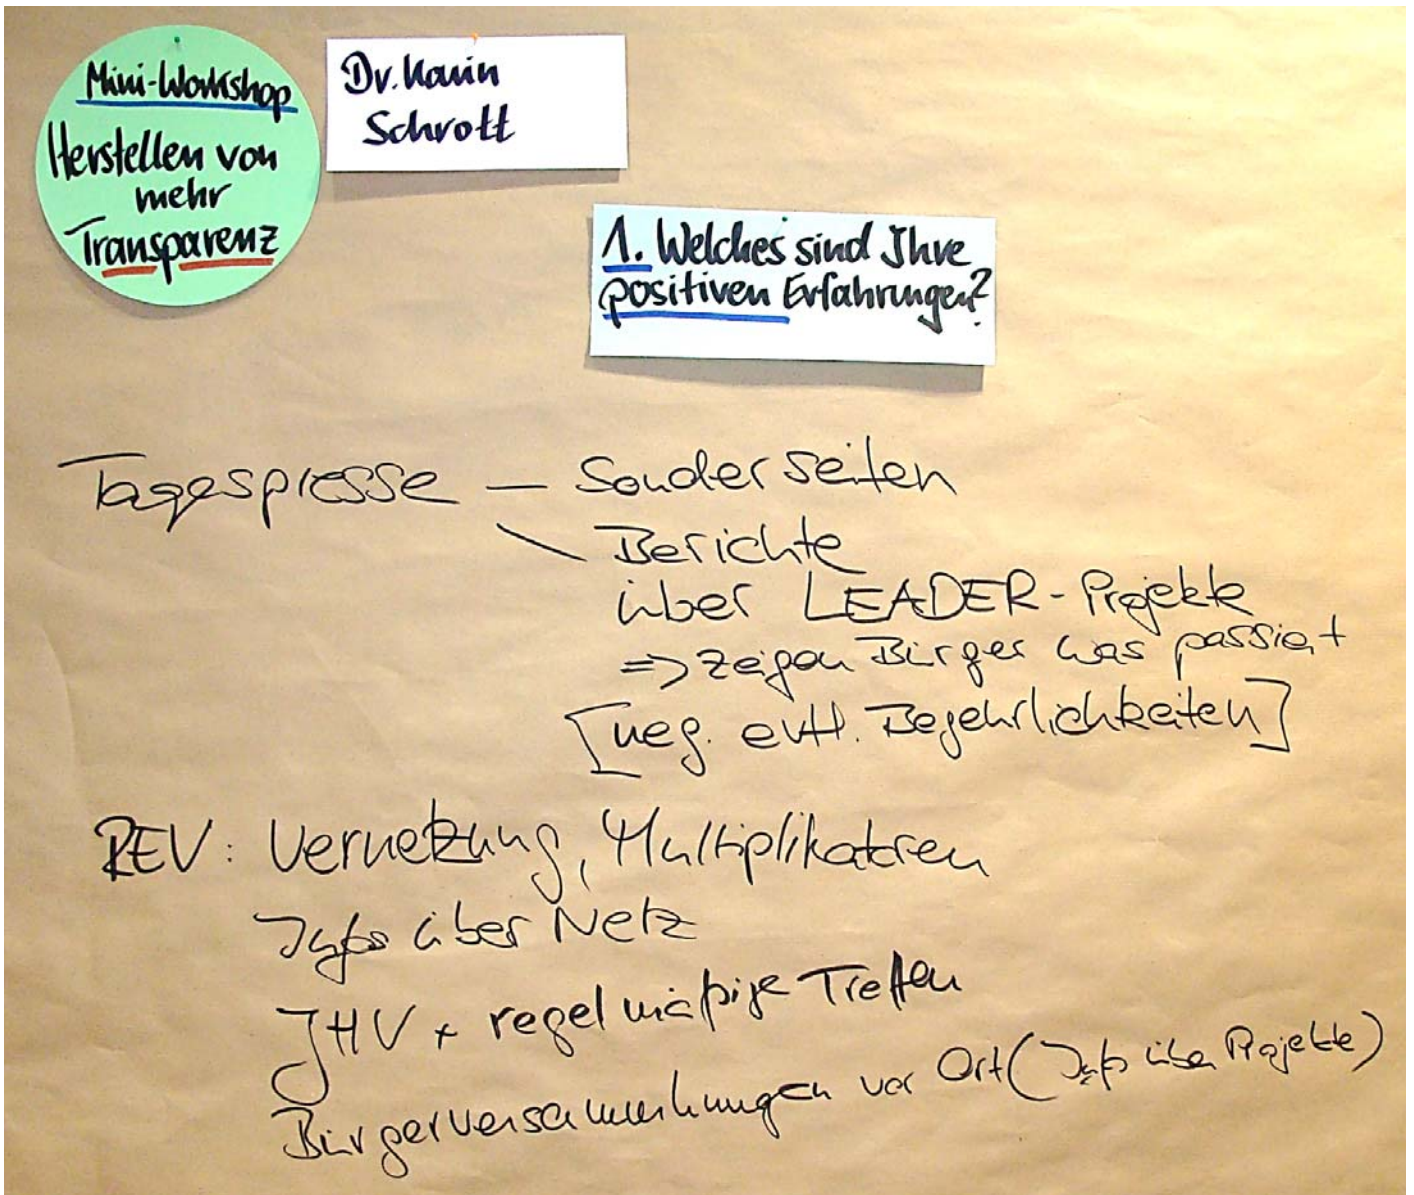 Mini-Workshop
Herstellen von
mehr
Transparenz
Dr. Karin
Schrott
1. Welches sind Ihre
positiven Erfahrungen?
Tagespresse — Sonderseiten
Berichte
über LEADER-Projekte
=> zeigen Bürger was passiert
[neg. evtl. Begehrlichkeiten]
REV: Vernetzung, Multiplikatoren
Infos über Netz
JHV + regelmäßige Treffen
Bürgerversammlungen vor Ort (Info über Projekte)